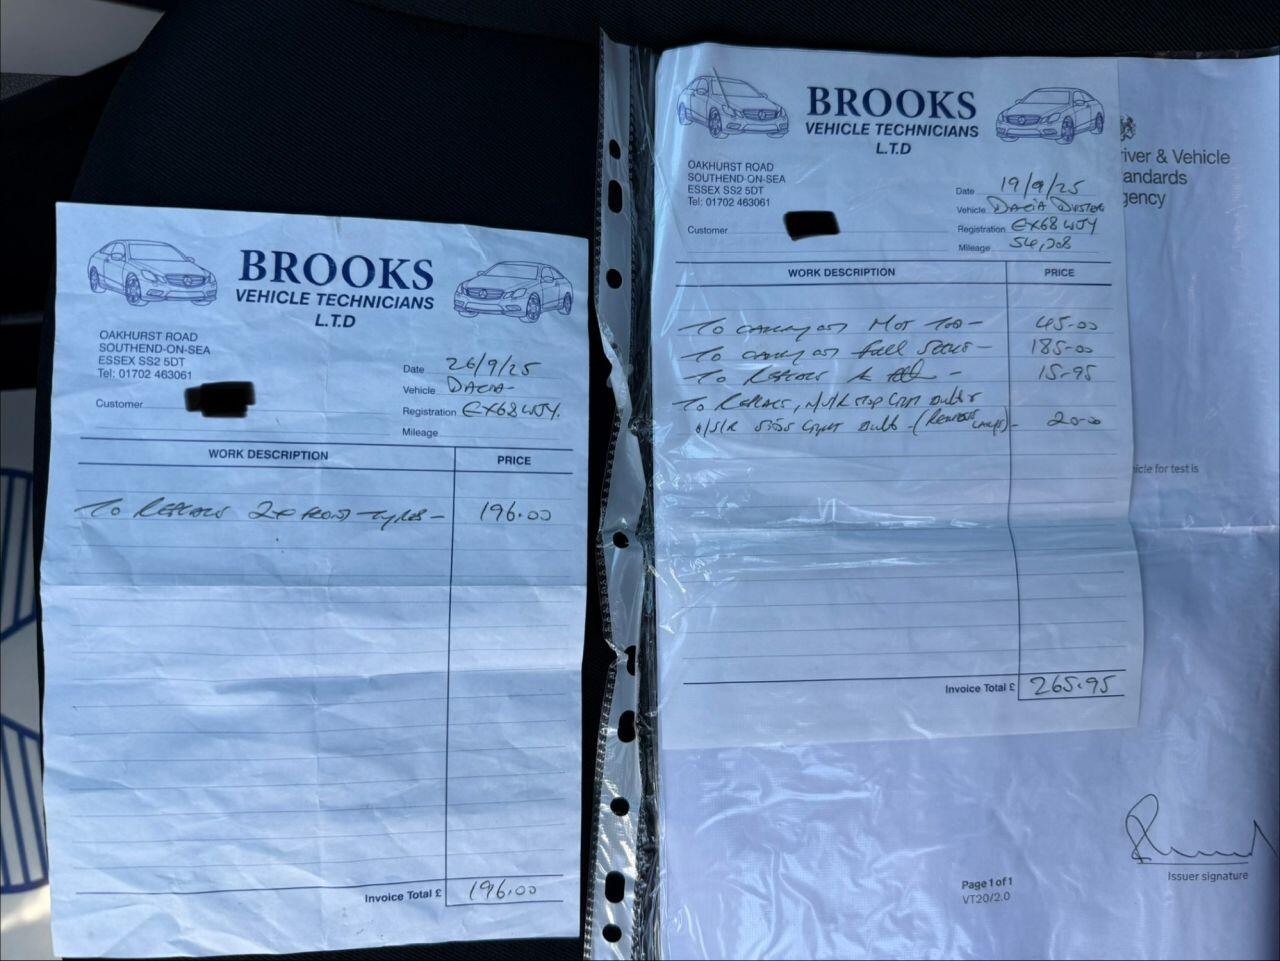 BROOKS
VEHICLE TECHNICIANS
L.T.D
OAKHURST ROAD
SOUTHEND-ON-SEA
ESSEX SS2 5DT
Tel: 01702 463061
Customer
Date 26/9/25
Vehicle DACIA
Registration EX68 WJY.
Mileage
WORK DESCRIPTION PRICE
To Replace 2x front tyres - 196.00
Invoice Total £ 196.00
BROOKS
VEHICLE TECHNICIANS
L.T.D
OAKHURST ROAD
SOUTHEND-ON-SEA
ESSEX SS2 5DT
Tel: 01702 463061
Customer
Date 19/9/25
Vehicle DACIA DUSTER
Registration EX68 WJY
Mileage 54,208
WORK DESCRIPTION PRICE
To carry out MOT - 45-00
To carry out full - 185-00
To Replace - 15-95
To Replace, N/S/R STOP light bulb &
O/S/R side light bulb - 20-00
Invoice Total £ 265.95
iver & Vehicle
andards
gency
icle for test is
Issuer signature
Page 1 of 1
VT20/2.0